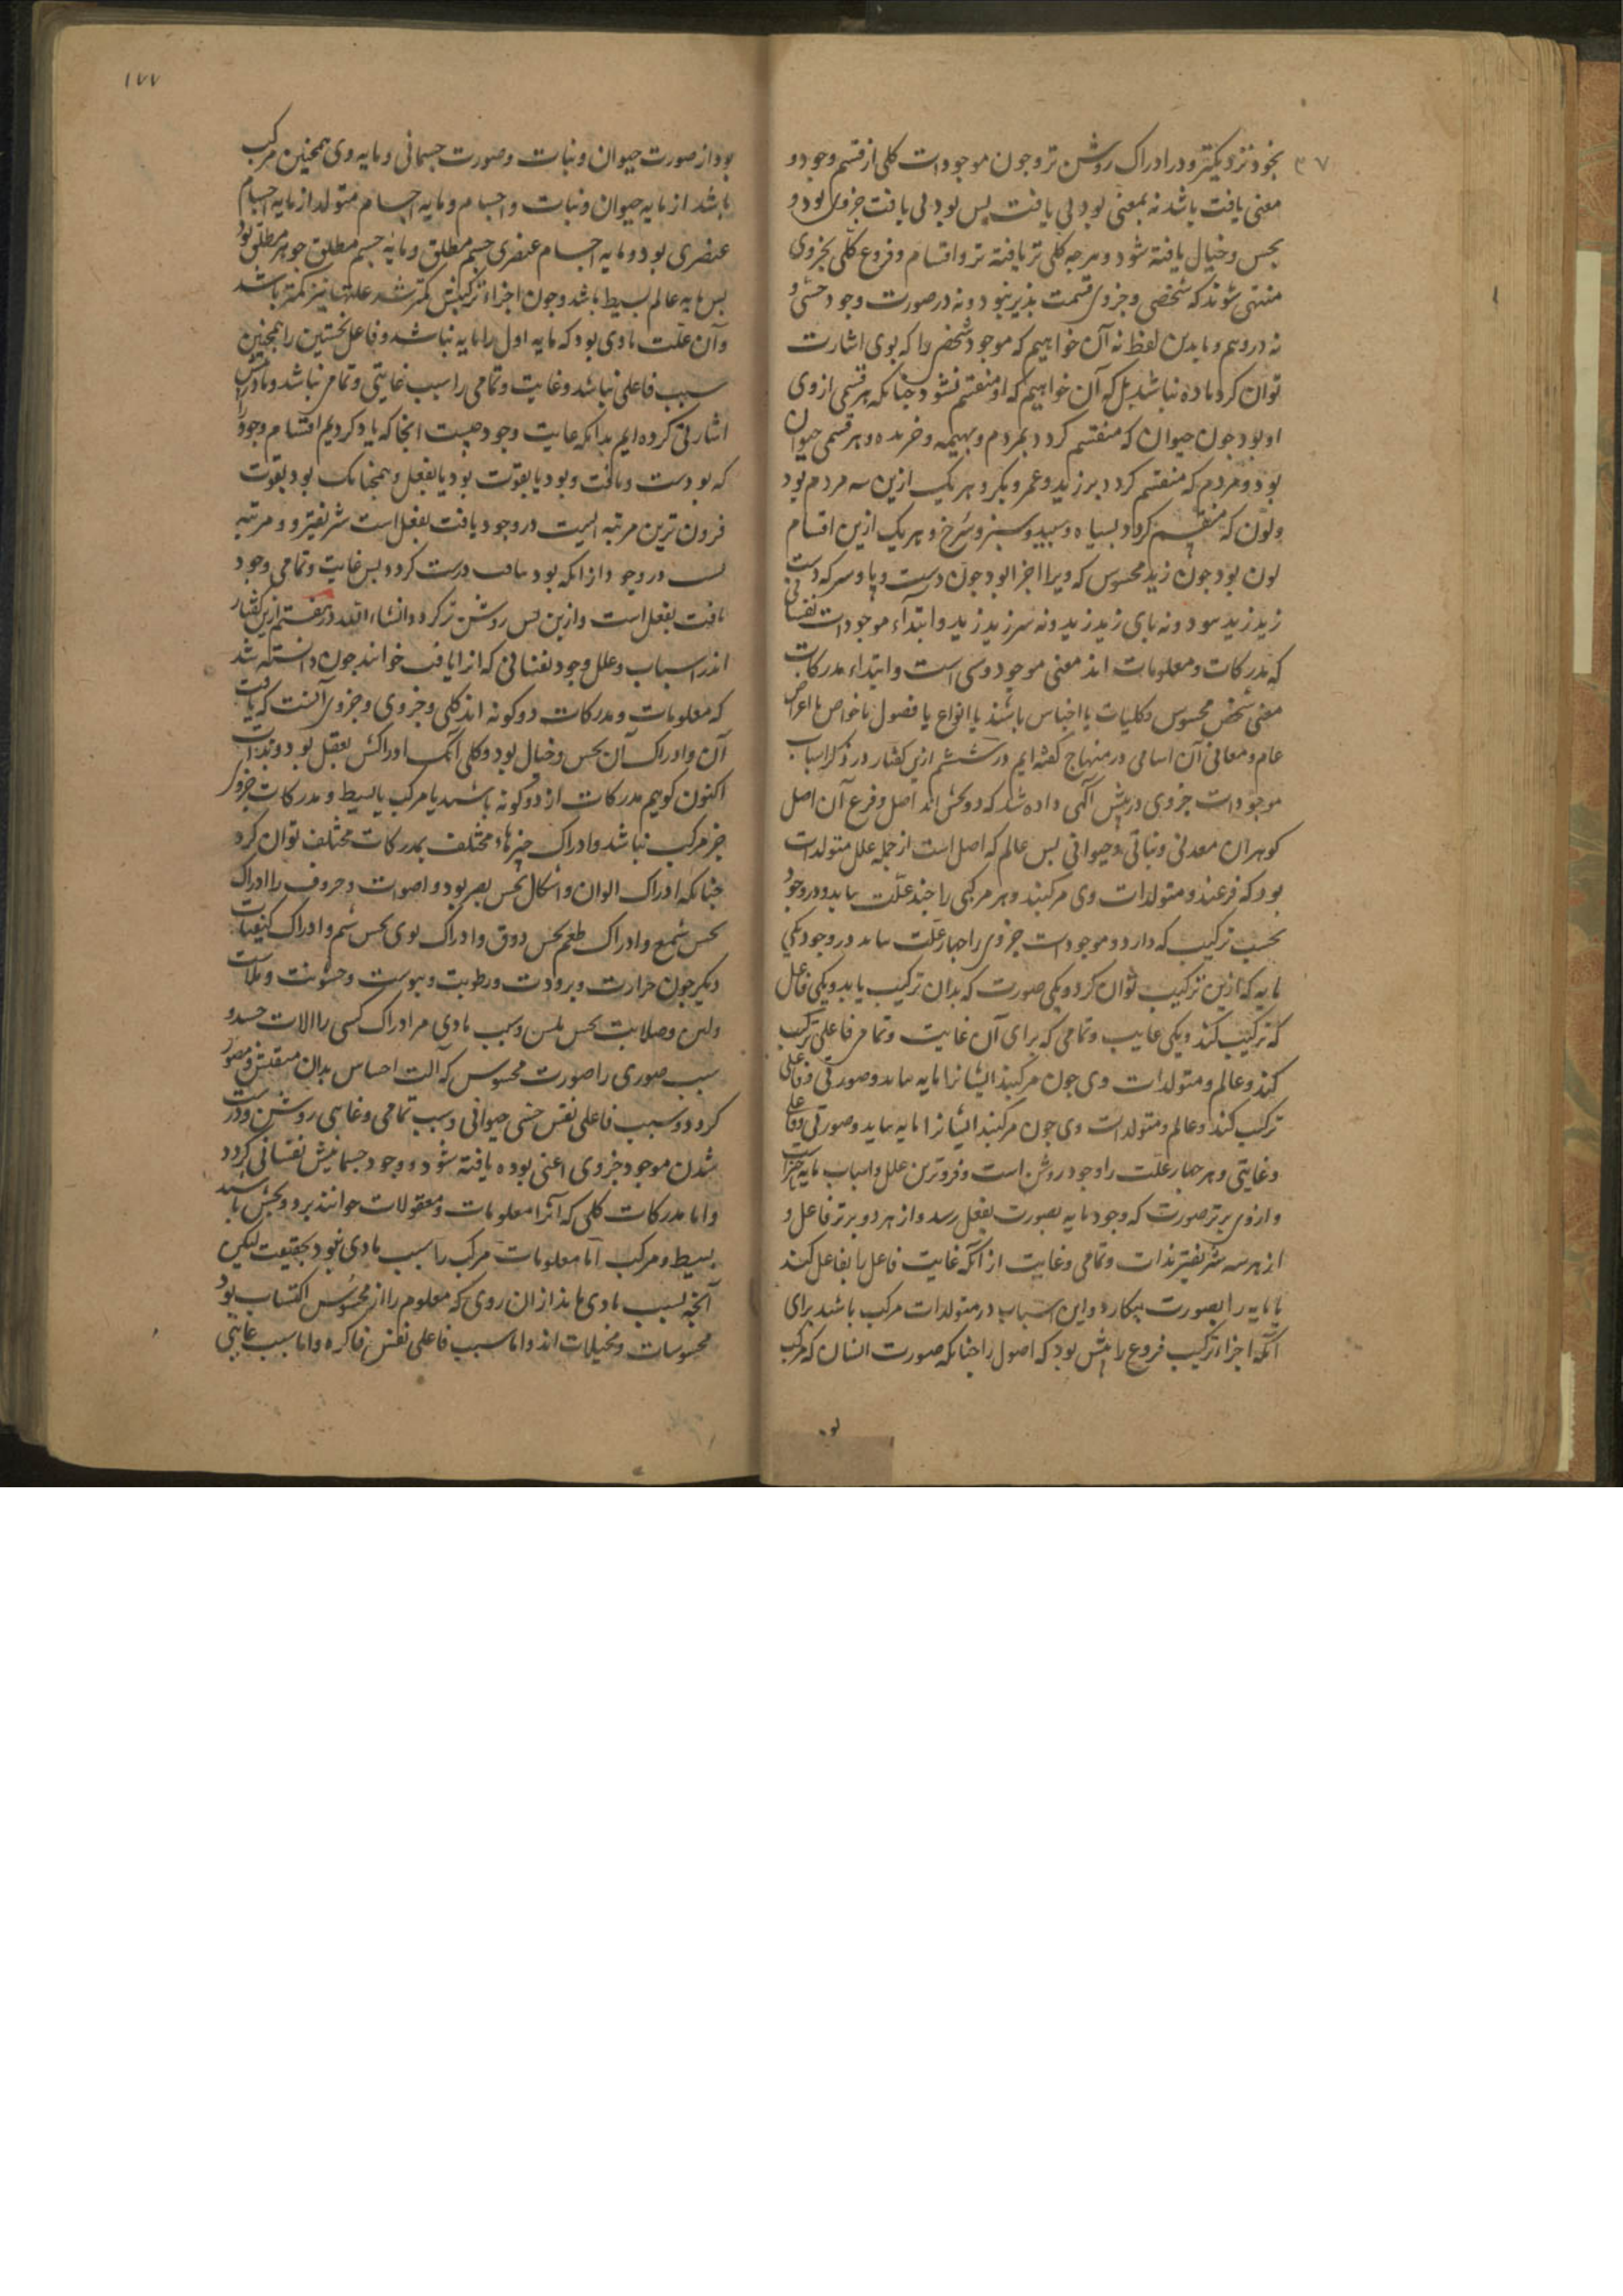 بخود نزدیکتر و در ادراک روشن تر و جون موجودات کلی از قسم وجود و
معنی یافت باشد نه بمعنی بود بی یافت پس بود بی یافت جزوی بود و
بحس و خیال یافته شود و هرجه کلی تر یافته تر و اقسام و فروع کلی بجزوی
منتهی شوند که شخصی و جزوی قسمت بذیر نبود و نه در صورت وجود حسی و
نه در وهم و ما بدین لفظ نه آن خواهیم که موجود شخصی را که بوی اشارت
توان کرد ماده نباشد بل که آن خواهیم که او منقسم نشود جنانکه هر قسمی از وی
او بود جون حیوان که منقسم کردد بمردم و بهیمه و خزنده و هر قسمی حیوان
بود و مردم که منقسم کردد بر زید و عمر و بکر و هر یک ازین سه مردم بود
ولون که منقسم کردد بسیاه و سبید و سبز و سرخ و هر یک ازین اقسام
لون بود جون زید محسوس که ویرا اجزا بود جون دست و پا و سر که دست
زید زید نبود و نه بای زید زید و نه سر زید زید و ابتداء موجودات نفسانی
که مدرکات و معلومات اند معنی موجود و شی است و ابتداء مدرکات
معنی شخص محسوس و کلیات یا اجناس باشند یا انواع یا فصول یا خواص یا اعراض
عام و معانی آن اسامی در منهاج کفته ایم در ششم ازین کفتار در ذکر اسباب
موجودات جزوی در پیش آکهی داده شد که دو بخش اند اصل و فرع آن اصل
کوهران معدنی و نباتی و حیوانی بس عالم که اصل است از جمله علل متولدات
بود که فرعند و متولدات وی مرکبند و هر مرکبی را جند علت بباید در وجود
بحسب ترکیب که دارد و موجودات جزوی را جهار علت بباید در وجود یکی
مایه که ازین ترکیب توان کرد و یکی صورت که بدان ترکیب یابد و یکی فاعل
که ترکیب کند و یکی غایت و تمامی که برای آن غایت و تمامی فاعلی ترکیب
کند و عالم و متولدات وی جون مرکبند ایشانرا مایه بباید و صورتی و فاعلی
ترکیب کند و عالم و متولدات وی جون مرکبند ایشانرا مایه بباید و صورتی و فاعلی
و غایتی و هر جهار علت را وجود روشن است و فروترین علل و اسباب مایه
و از وی برتر صورت که وجود مایه بصورت بفعل رسد و از هر دو برتر فاعل و
از هر سه شریفتر بذات و تمامی و غایت از آنکه غایت فاعل را بفاعل کند
یا مایه را بصورت بیکارد و این اسباب در متولدات مرکب باشند برای
آنکه اجزاء ترکیب فروع را بیش بود که اصول را جنانکه صورت انسان که مرکب
بو
۱۷۷
بود از صورت حیوان و نبات و صورت جسمانی و مایه وی همجنین مرکب
باشد از مایه حیوان و نبات و اجسام و مایه اجسام متولد از مایه اجسام
عنصری بود و مایه اجسام عنصری جسم مطلق و مایه جسم مطلق جوهر مطلق بود
بس مایه عالم بسیط باشد و جون اجزاء ترکیبش کمتر شد علتها نیز کمتر باشد
و آن علت مادی بود که مایه اول را مایه نباشد و فاعل نخستین را همجنین
سبب فاعلی نباشد و غایت و تمامی را سبب غایتی و تمامی نباشد و ما در پیش
اشارتی کرده ایم بدانکه غایت وجود جیست انجا که یاد کردیم اقسام وجود را
که بودست و یافت و بود یا بقوت بود یا بفعل و همجنانک بود بقوت
فرون ترین مرتبه ایست در وجود یافت بفعل است شریفتر و مرتبه
ایست در وجود از انکه بود بیافت درست کردد بس غایت و تمامی وجود
یافت بفعل است و ازین بس روشن تر کردد انشاء الله در هفتم ازین کفتار
اندر اسباب و علل وجود نفسانی که انرا یافت خوانند جون دانسته شد
که معلومات و مدرکات دو کونه اند کلی و جزوی و جزوی آنست که یافت
آن و ادراک آن بحس و خیال بود و کلی آنک ادراکش بعقل بود و بذات
اکنون کوییم مدرکات از دو کونه باشند یا مرکب یا بسیط و مدرکات جزوی
جز مرکب نباشد و ادراک جیزهاء مختلف بمدرکات مختلف توان کرد
جنانکه ادراک الوان و اشکال بحس بصر بود و اصوات و حروف را ادراک
بحس سمع و ادراک طعم بحس ذوق و ادراک بوی بحس شم و ادراک کیفیات
دیکر جون حرارت و برودت و رطوبت و یبوست و خشونت و ملاست
ولین و صلابت بحس لمس و سبب مادی مر ادراک حسی را الات حسند و
سبب صوری را صورت محسوس که آلت احساس بدان منقش و مصور
کردد و سبب فاعلی نفس حسی حیوانی و سبب تمامی و غایی روشن و درست
شدن موجود جزوی اعنی بوده یافته شود و وجود جسمانیش نفسانی کردد
و اما مدرکات کلی که آنرا معلومات و معقولات خوانند بر دو بخش باشند
بسیط و مرکب اما معلومات مرکب را سبب مادی نبود بحقیقت لیکن
آنجه بسبب مادی ماند از ان روی که معلوم را از محسوس اکتساب بود
محسوسات و مخیلات اند و اما سبب فاعلی نفس فاکره و اما سبب غایتی